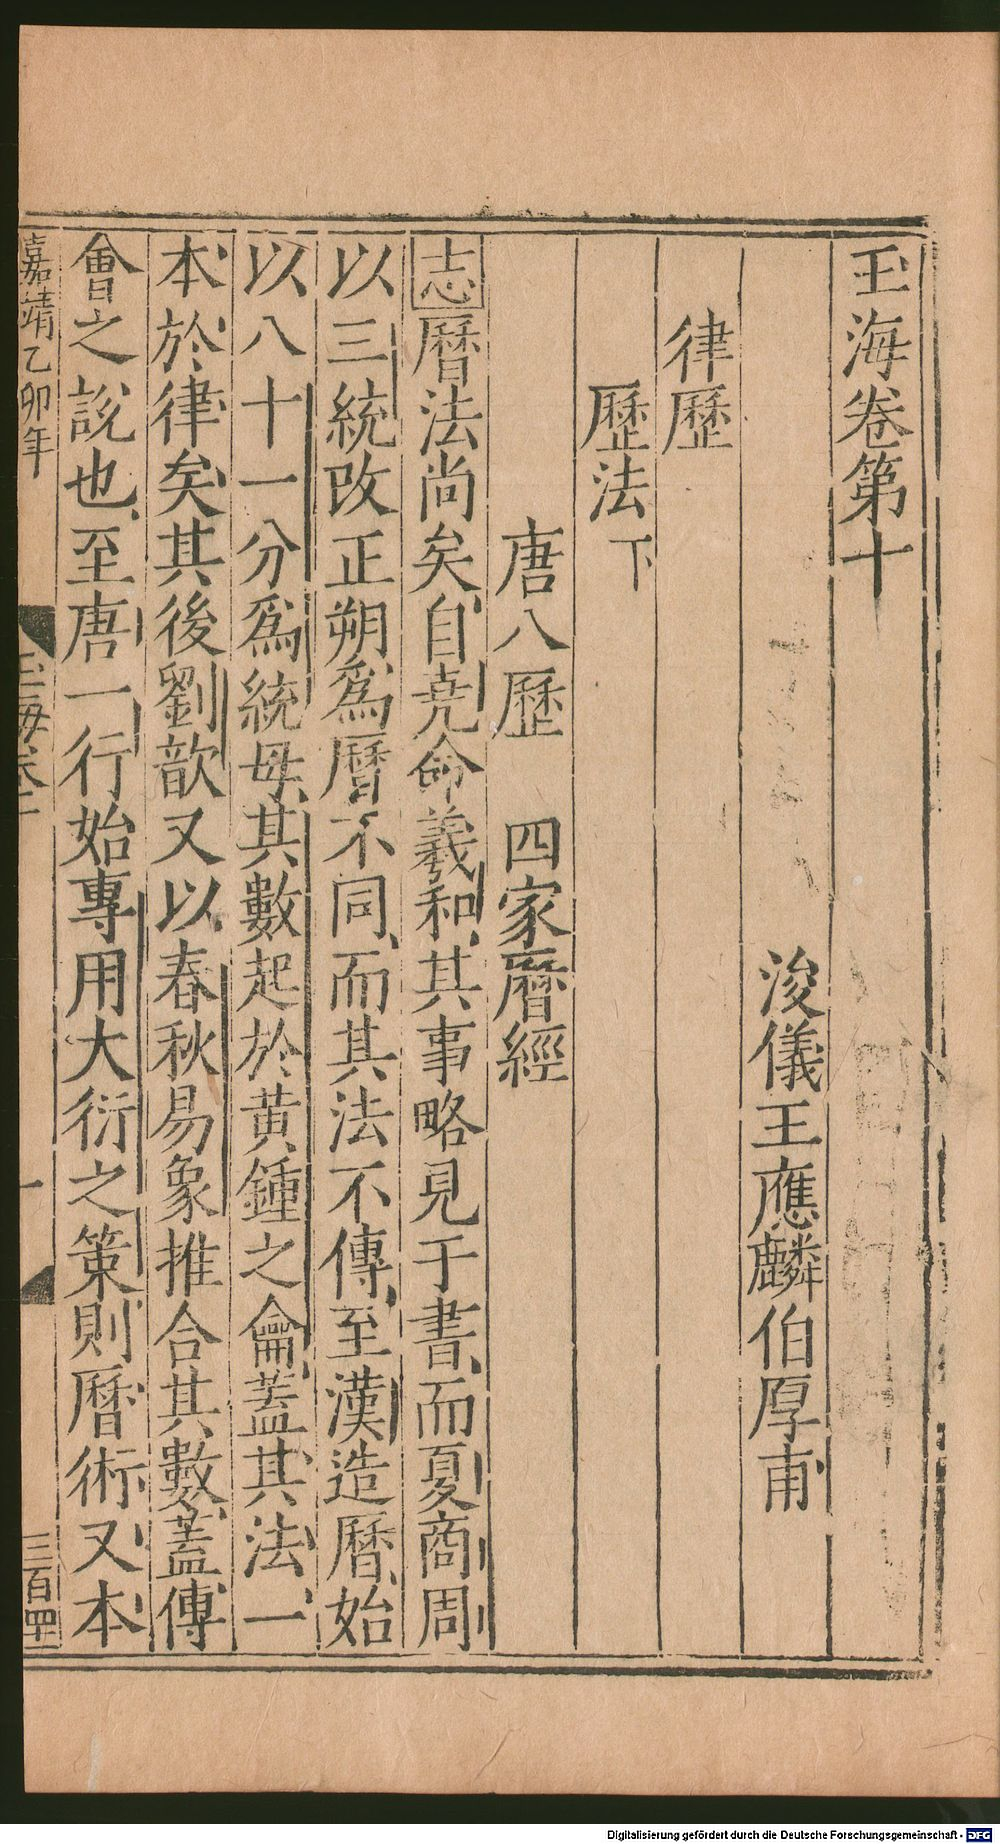 玉海卷第十
浚儀王應麟伯厚甫
律歷
歷法下
唐八歷　四家曆經
志曆法尚矣自堯命羲和其事略見于書而夏商周
以三統改正朔爲曆不同而其法不傳至漢造曆始
以八十一分爲統母其數起於黃鍾之龠蓋其法一
本於律矣其後劉歆又以春秋易象推合其數蓋傳
會之說也至唐一行始專用大衍之策則曆術又本
嘉靖乙卯年
玉海卷十
一
Digitalisierung gefördert durch die Deutsche Forschungsgemeinschaft - DFG